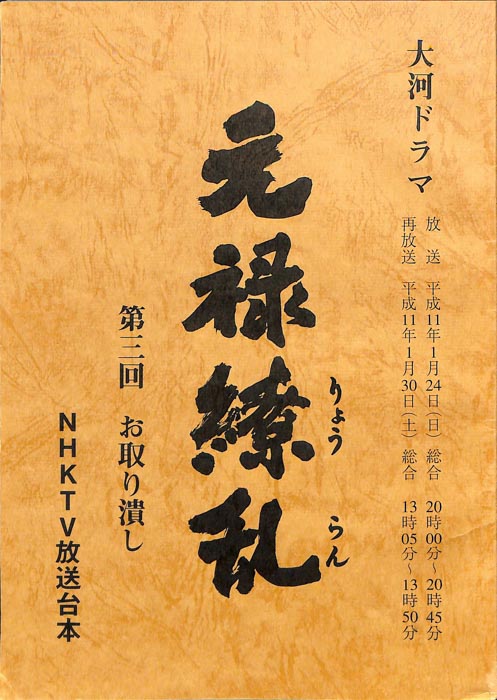 大河ドラマ
放送 平成11年1月24日(日) 総合 20時00分〜20時45分
再放送 平成11年1月30日(土) 総合 13時05分〜13時50分
元禄繚乱
りょう らん
第三回 お取り潰し
NHKTV放送台本